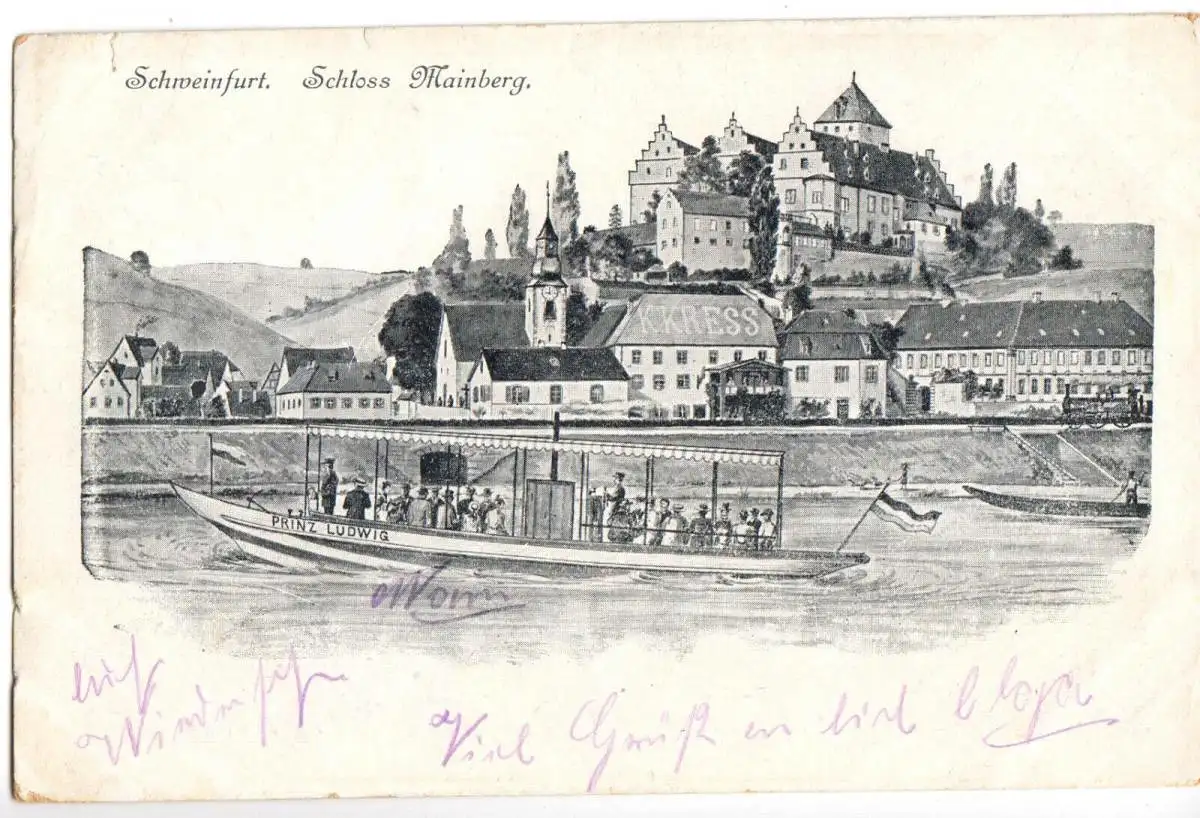 Schweinfurt. Schloss Mainberg.
K.KRESS
PRINZ LUDWIG
Wann
auf
Wiedersehn
Viel Grüß